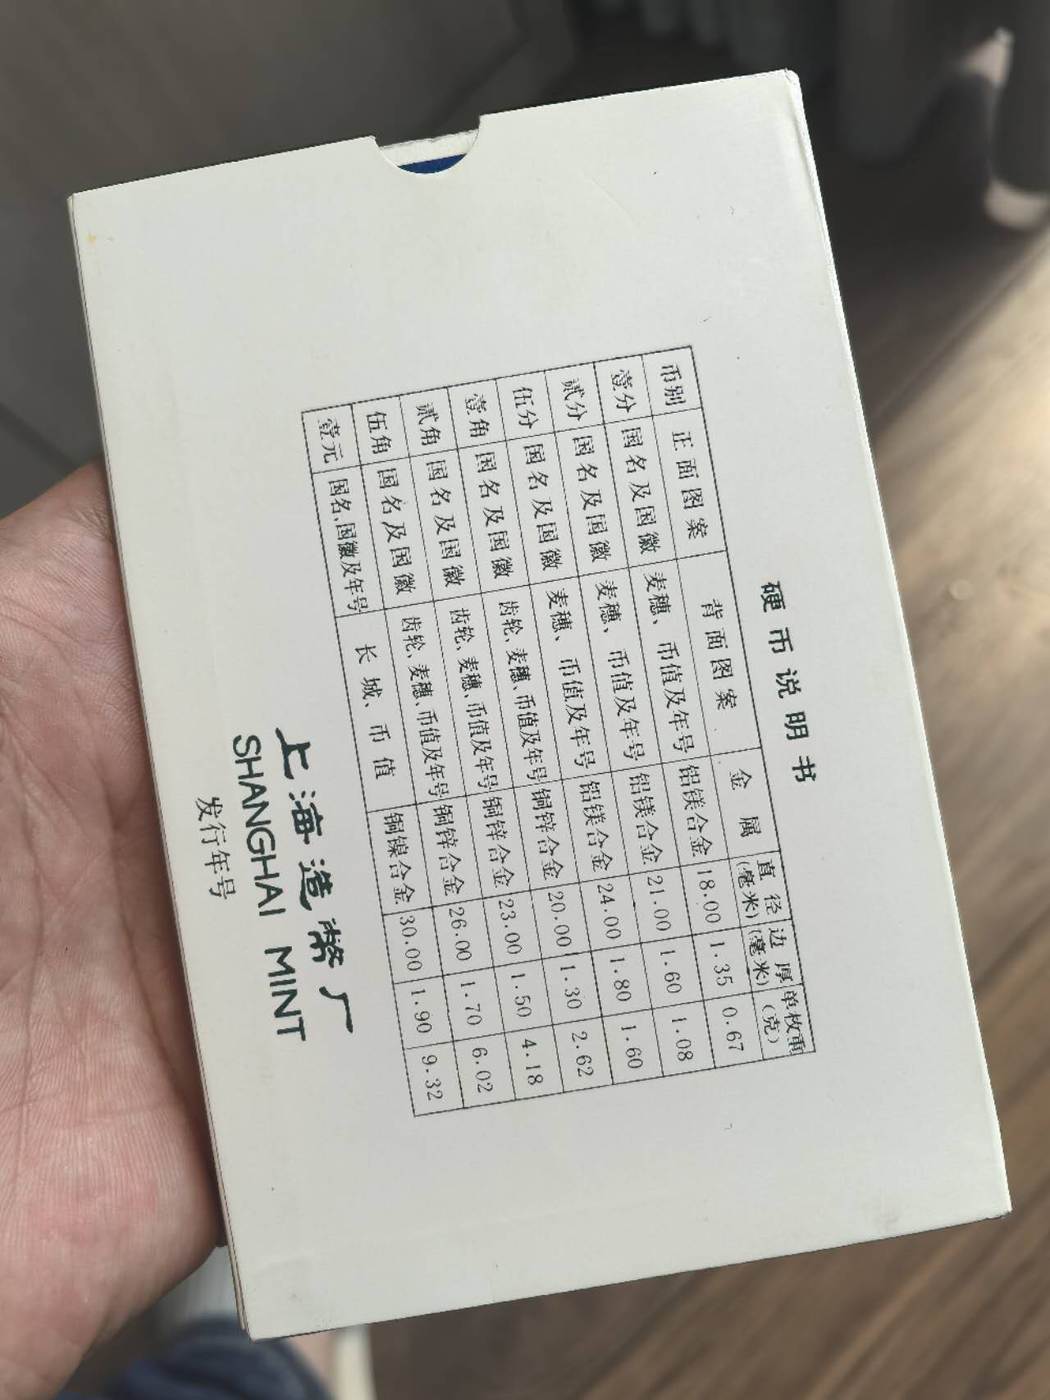 硬币说明书
币别 正面图案 背面图案 金属 直径(毫米) 边厚(毫米) 单枚重(克)
壹分 国名及国徽 麦穗、币值及年号 铝镁合金 18.00 1.35 0.67
贰分 国名及国徽 麦穗、币值及年号 铝镁合金 21.00 1.60 1.08
伍分 国名及国徽 麦穗、币值及年号 铝镁合金 24.00 1.80 1.60
壹角 国名及国徽 齿轮、麦穗、币值及年号 铜锌合金 20.00 1.30 2.62
贰角 国名及国徽 齿轮、麦穗、币值及年号 铜锌合金 23.00 1.50 4.18
伍角 国名及国徽 齿轮、麦穗、币值及年号 铜锌合金 26.00 1.70 6.02
壹元 国名、国徽及年号 长城、币值 铜镍合金 30.00 1.90 9.32
上海造幣厂
SHANGHAI MINT
发行年号